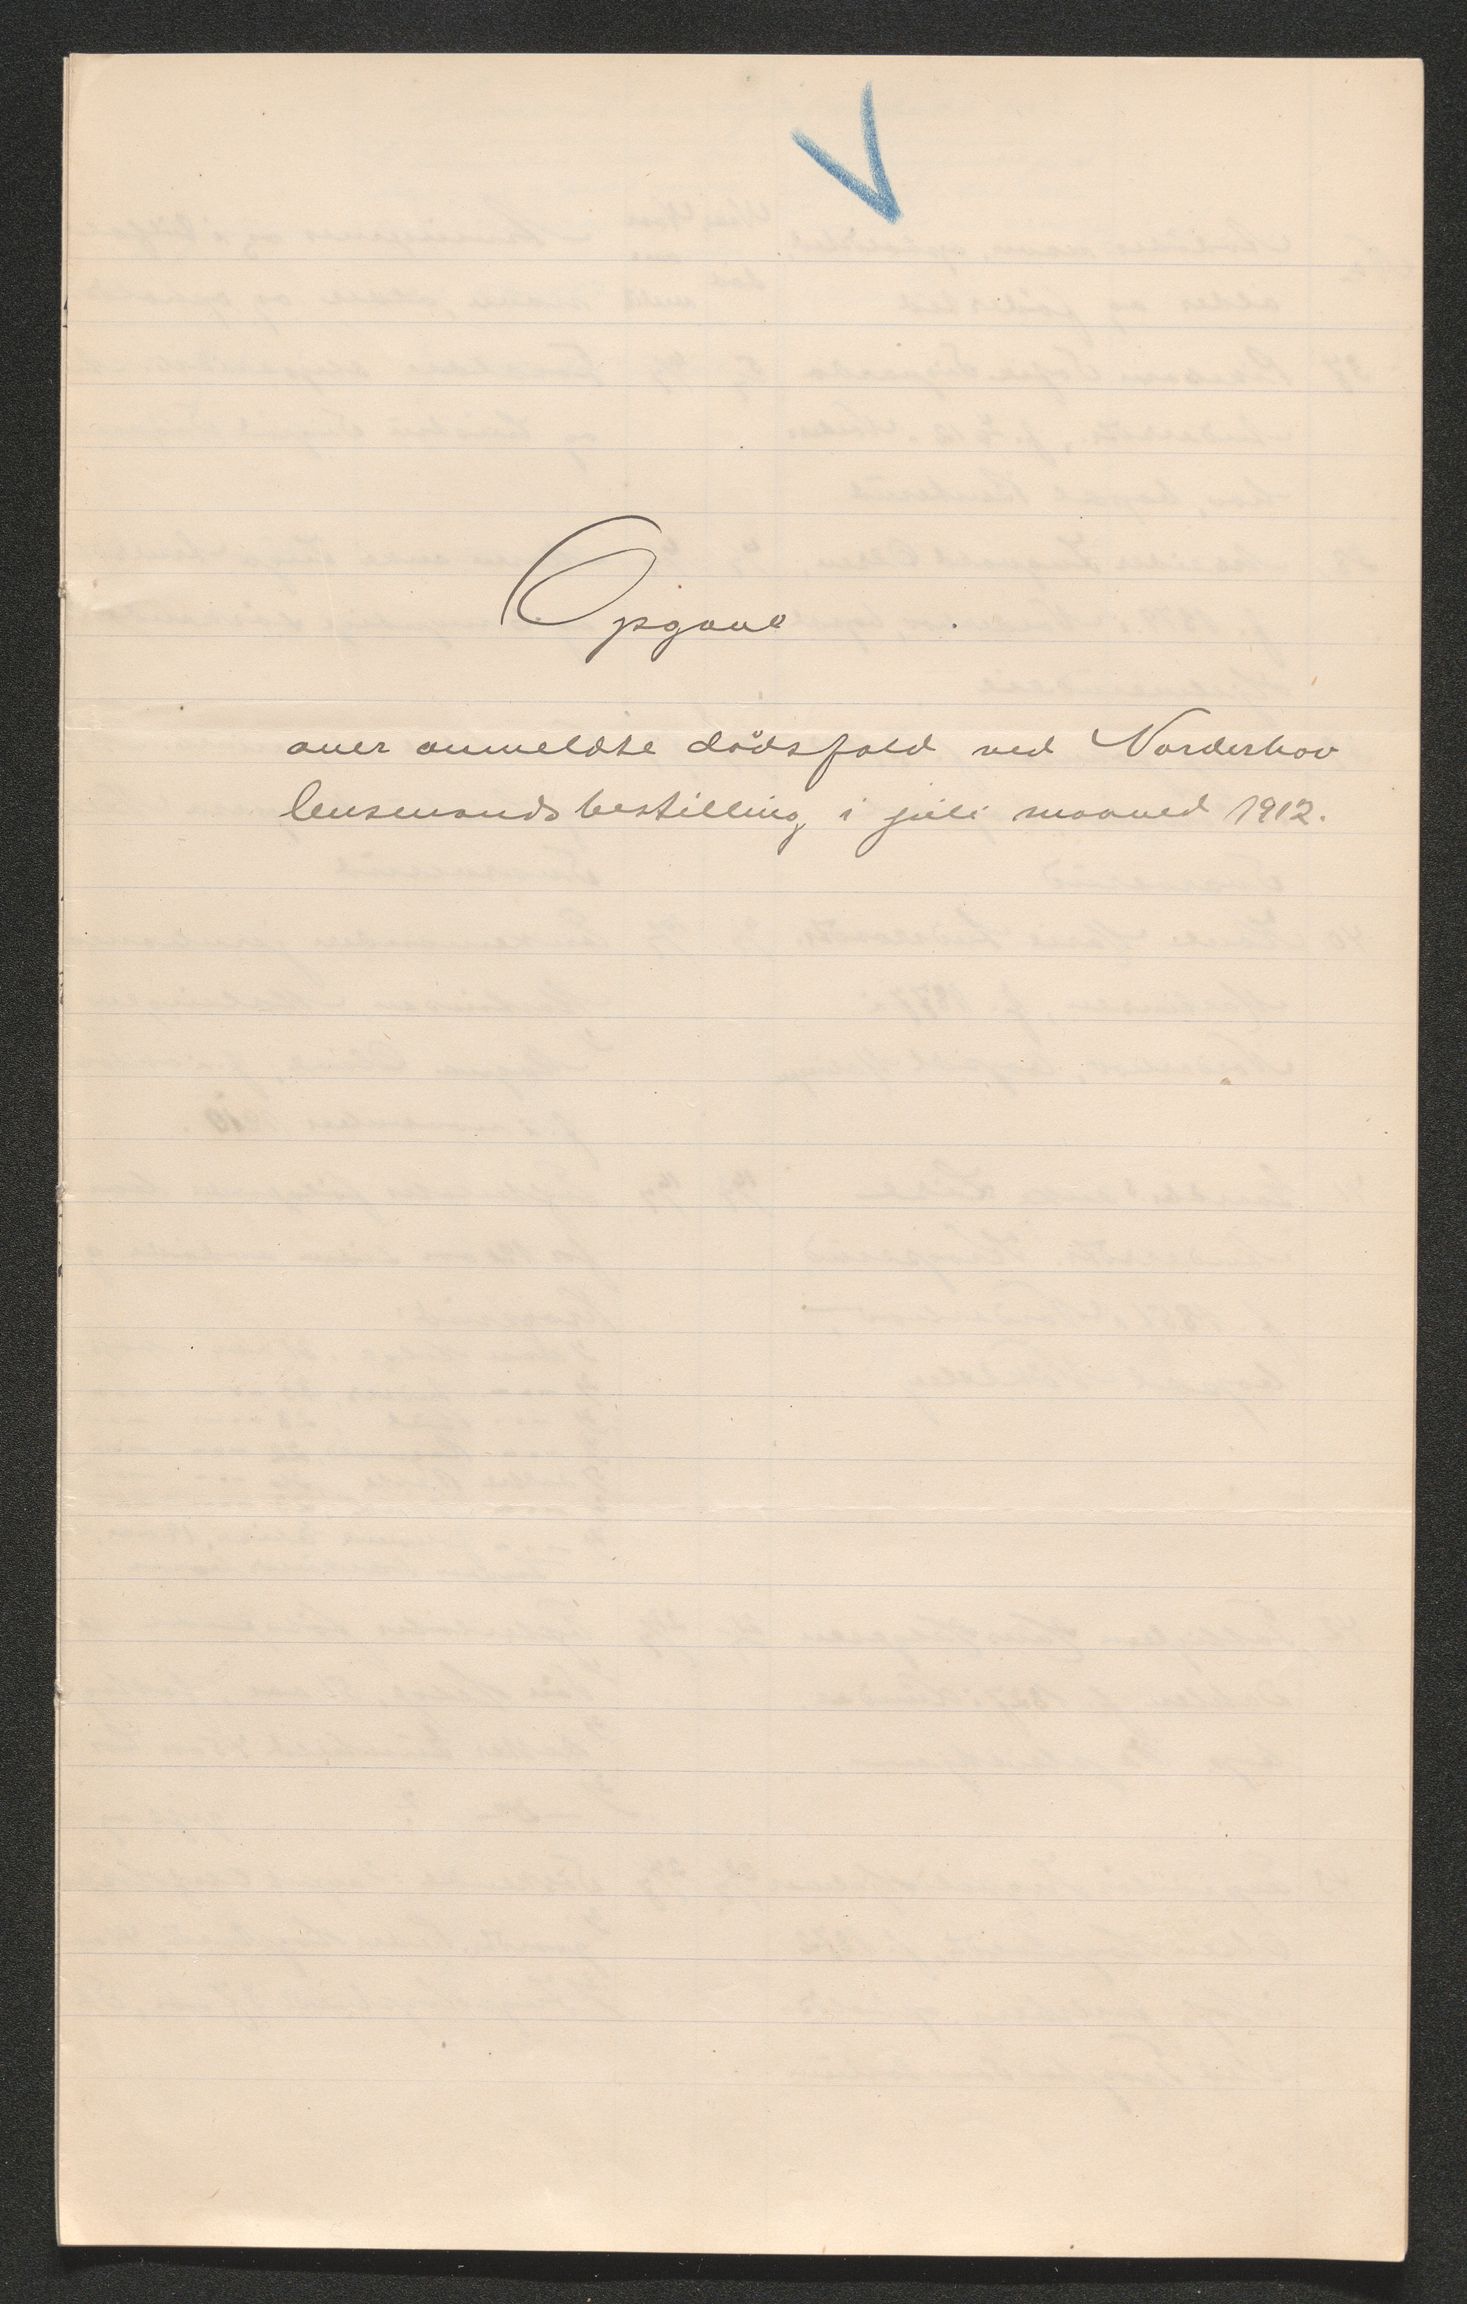 Opgave
over anmeldte dödsfald ved Norderhov
lensmandsbestilling i juli maaned 1912.